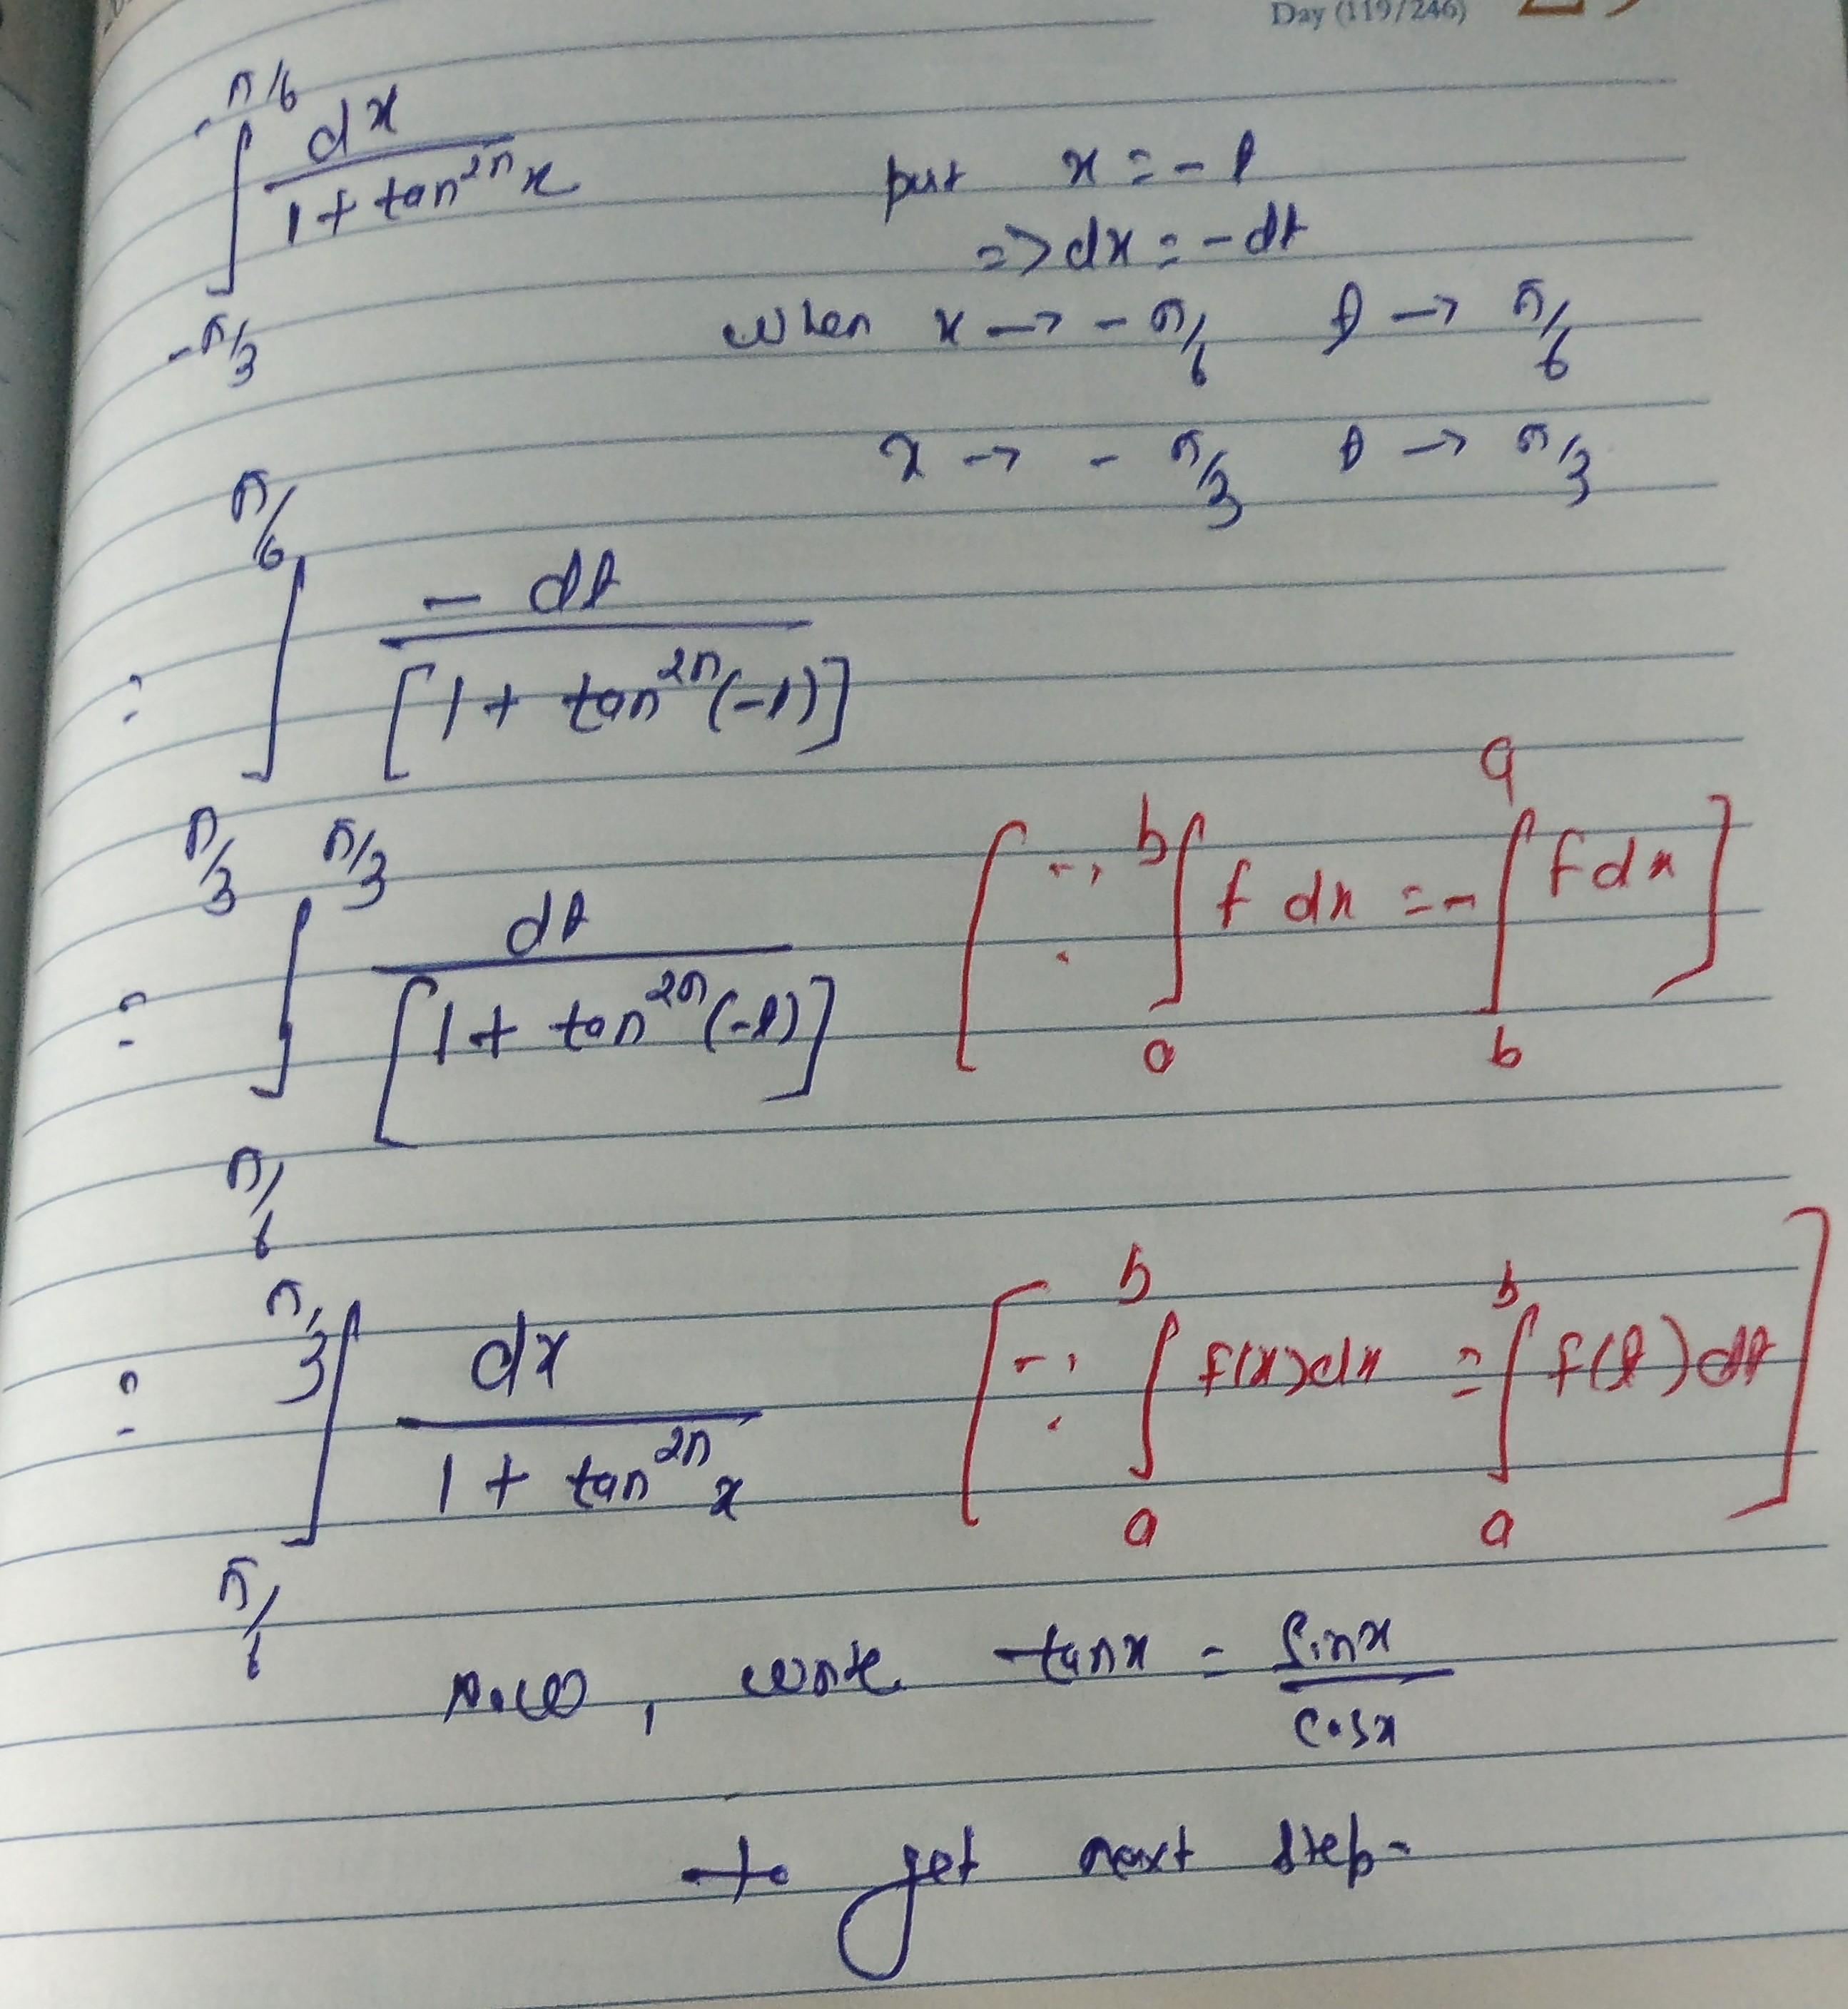 Day (119/246)
∫_{-π/3}^{-π/6} dx / (1 + tan²ⁿ x)    put x = -t
=> dx = -dt
when x → -π/6  t → π/6
x → -π/3  t → π/3
= ∫_{π/3}^{π/6} -dt / [1 + tan²ⁿ(-t)]
= ∫_{π/6}^{π/3} dt / [1 + tan²ⁿ(-t)]    [∵ ∫_a^b f dx = - ∫_b^a f dx]
= ∫_{π/6}^{π/3} dx / (1 + tan²ⁿ x)    [∵ ∫_a^b f(x)dx = ∫_a^b f(t)dt]
Now, write tanx = sinx / cosx
to get next step-